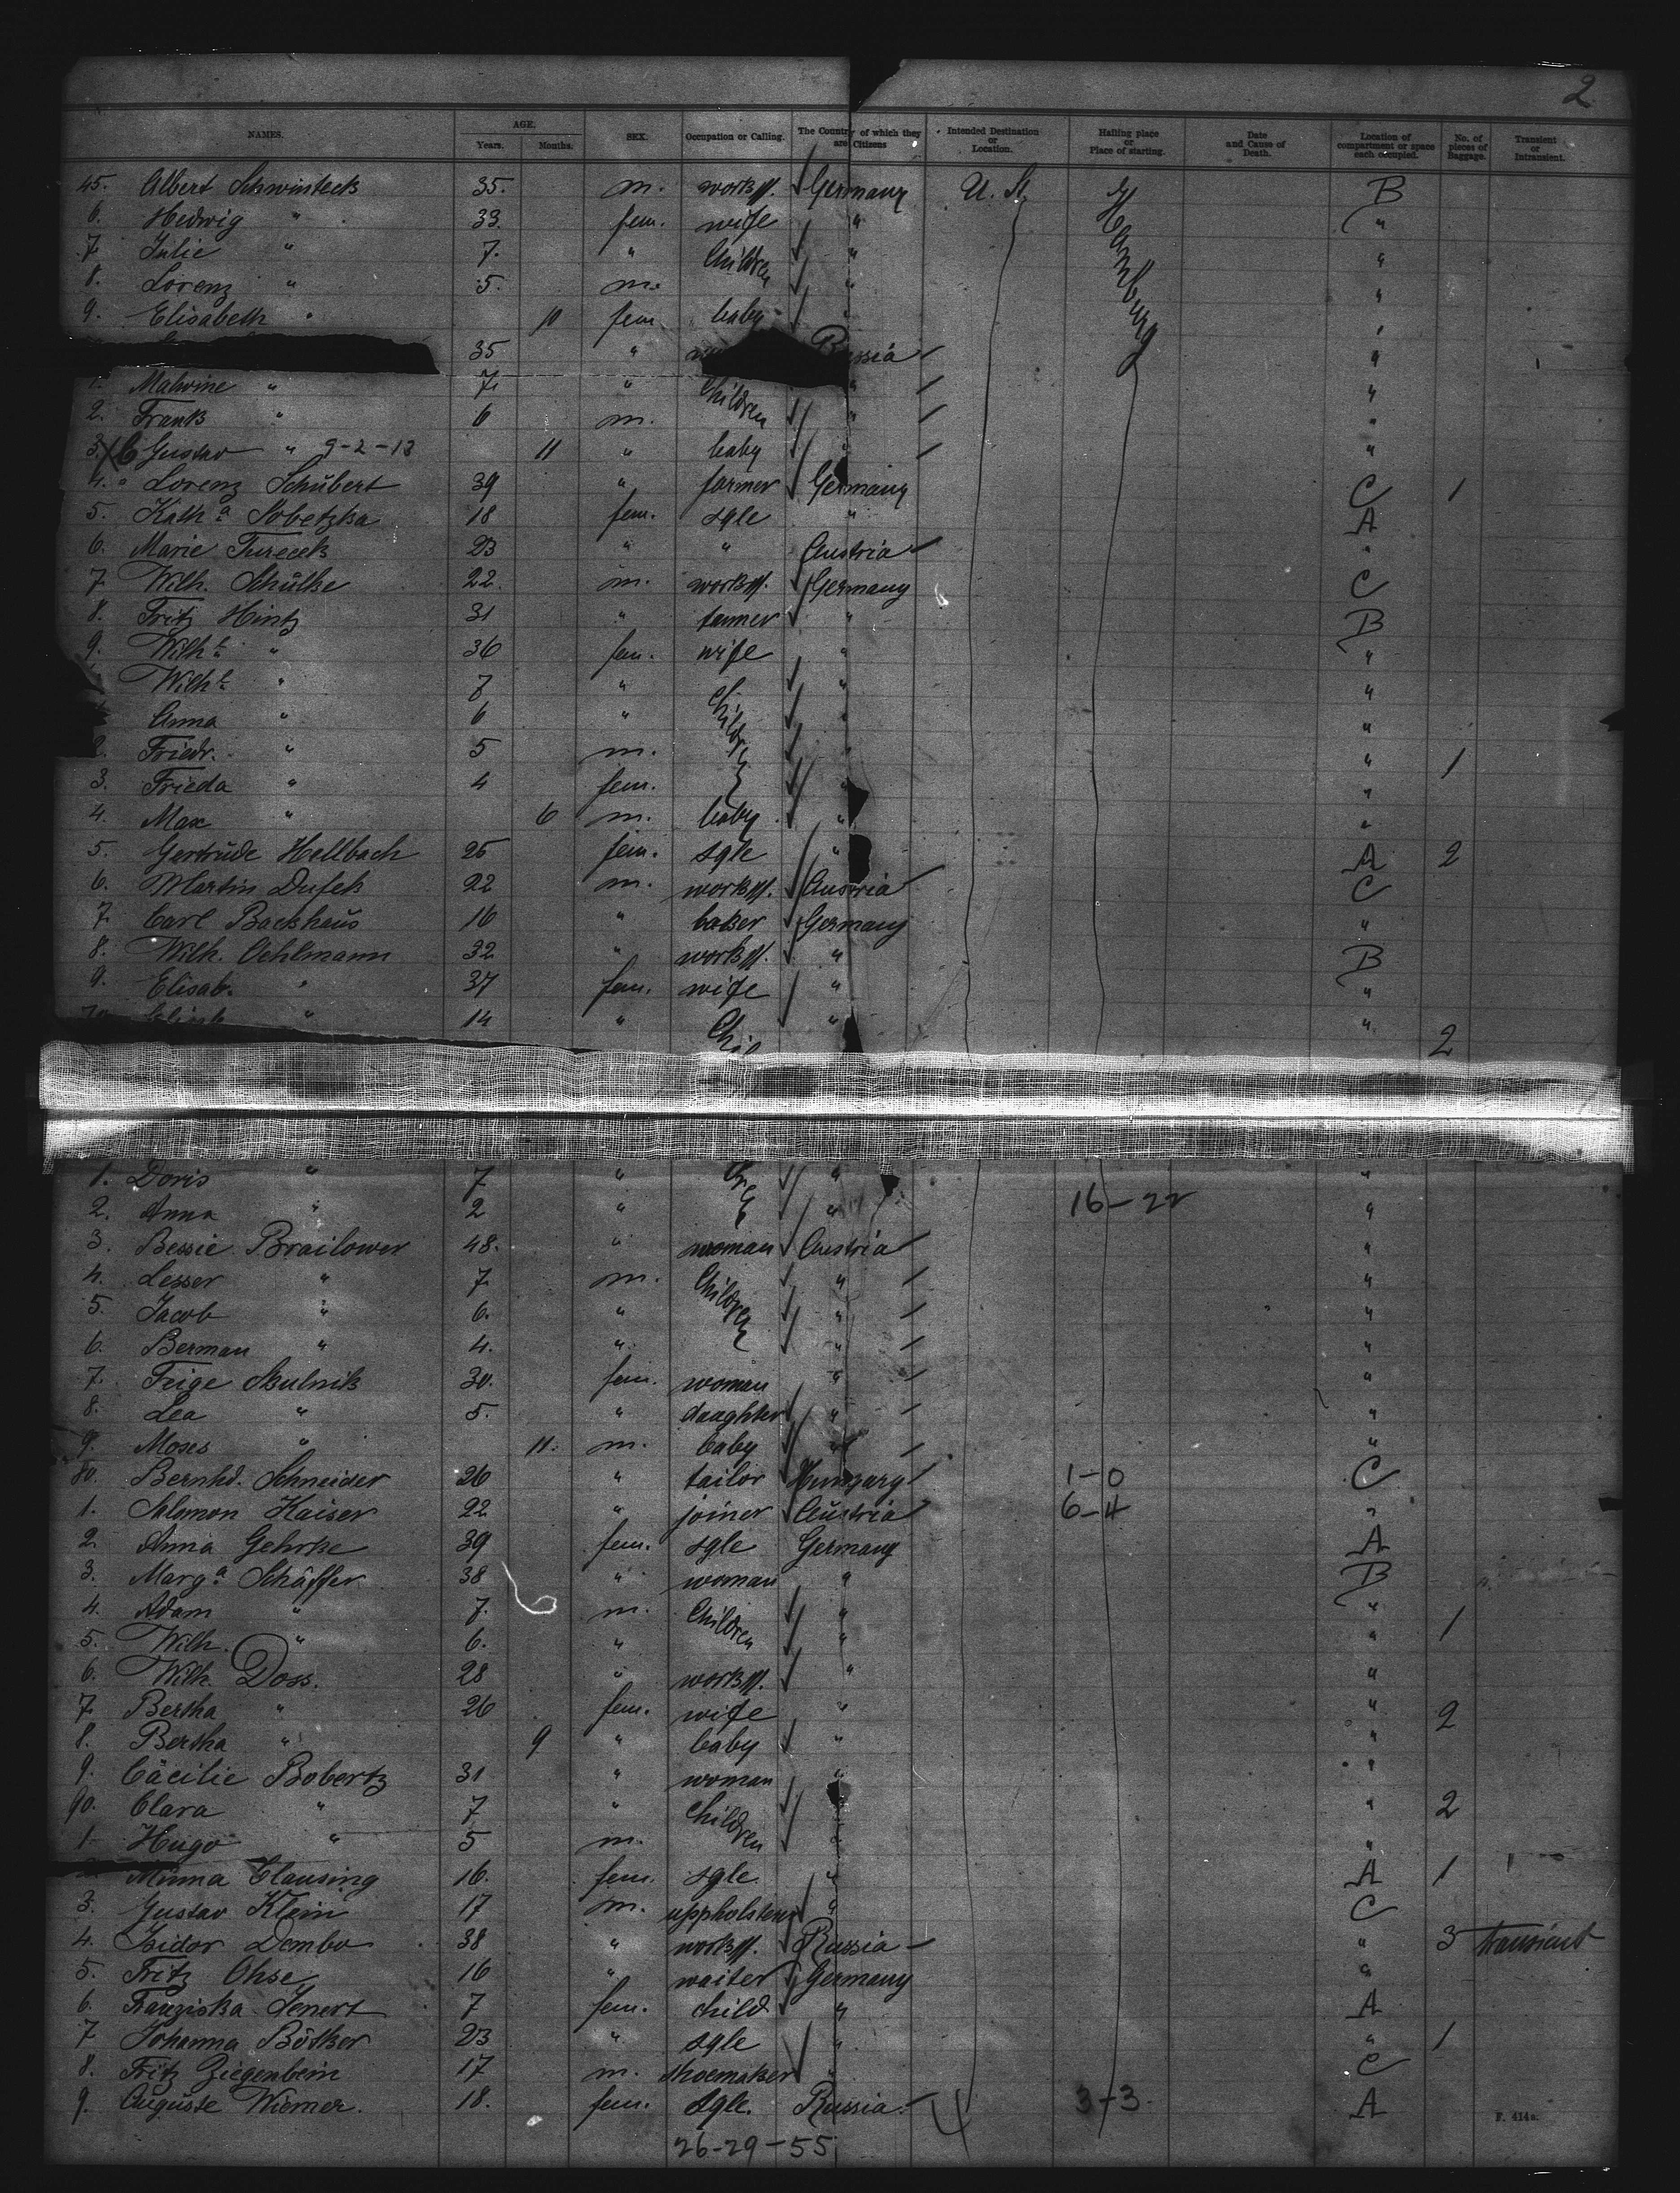 2
NAMES. AGE. Years. Months. SEX. Occupation or Calling. The Country of which they are Citizens Intended Destination or Location. Hailing place or Place of starting. Date and Cause of Death. Location of compartment or space each occupied. No. of pieces of Baggage. Transient or Intransient.
45. Albert Schwinteck 35. m. Germany U. St. Hamburg B
6. Hedwig " 33. fem. wife " "
7. Julie " 7. " Children " "
8. Lorenz " 5. m. " "
9. Elisabeth " 10 fem. baby " "
35 " Russia "
1. Malwine " 7. " Children " "
2. Frank " 6 m. " "
3. Gustav " 9-2-13 11 " baby " "
4. " Lorenz Schubert 39 " farmer Germany C 1
5. Kath.a Sobetzka 18 fem. sgle " A
6. Marie Tureck 23 " " Austria "
7. Wilh. Schulke 22. m. Germany C
8. Fritz Hintz 31 " farmer " B
9. Wilh.e " 36 fem. wife " "
Wilh.e " 7 " Children " "
Anna " 6 " " "
2. Friedr. " 5 m. " " 1
3. Frieda " 4 fem. " "
4. Max " 6 m. baby " "
5. Gertrude Hellbach 25 fem. sgle " A 2
6. Martin Dufek 22 m. Austria C
7. Carl Backhaus 16 " baker Germany "
8. Wilh. Oehlmann 32 " " B
9. Elisab. " 37 fem. wife " "
" 14 " " " 2
1. Doris " 7 " " "
2. Anna " 2 " " 16-22 "
3. Bessie Brailower 48. " woman Austria "
4. Lesser " 7. m. Children " "
5. Jacob " 6. " " "
6. Berman " 4. " " "
7. Feige Skulnik 30. fem. woman " "
8. Lea " 5. " daughter " "
9. Moses " 11. m. baby " "
80. Bernhd. Schneider 26 " tailor Hungary 1-0 C
1. Salomon Kaiser 22 " joiner Austria 6-4 "
2. Anna Gehrke 39 fem. sgle Germany A
3. Marg.a Schäffer 38 " woman " B
4. Adam " 7. m. Children " "
5. Wilh. " 6. " " " 1
6. Wilh. Doss. 28 " " "
7. Bertha " 26 fem. wife " " 2
8. Bertha " 9 " baby " "
9. Cäcilie Bobertz 31 " woman " "
90. Clara " 7 " Children " " 2
1. Hugo " 5 m. " "
Minna Clausing 16. fem. sgle. " A 1
3. Gustav Klein 17 m. uppholsterer " C
4. Isidor Dembo 38 " Russia " 3 transient
5. Fritz Ohse 16 " waiter Germany "
6. Franziska Jenert 7 fem. child " A
7. Johanna Bötker 23 " sgle " " 1
8. Fritz Ziegenbein 17 m. shoemaker " C
9. Auguste Wiemer. 18. fem. sgle. Russia. 3-3. A
26-29-55
F. 414a.